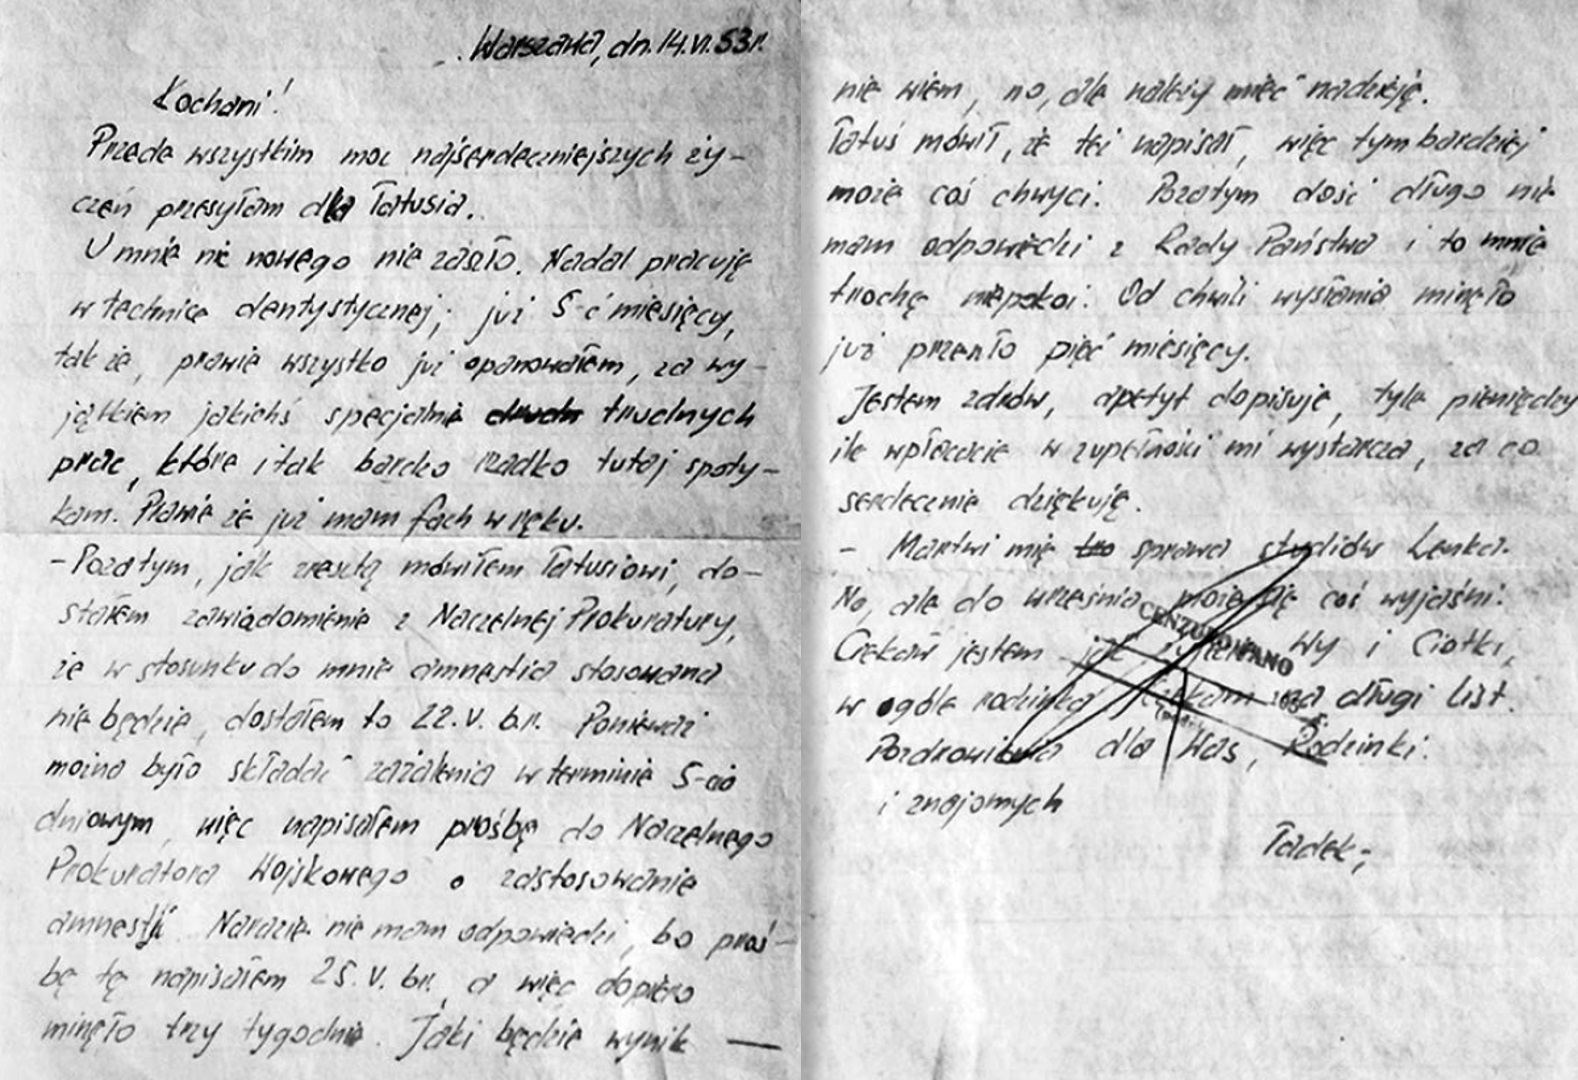 Warszawa, dn. 14.VI.53r.
Kochani!
Przede wszystkim moc najserdeczniejszych ży-
czeń przesyłam dla Tatusia.
U mnie nic nowego nie zaszło. Nadal pracuję
w technice dentystycznej; już 5-ć miesięcy,
tak że, prawie wszystko już opanowałem, za wy-
jątkiem jakichś specjalnie trudnych
prac, które i tak bardzo rzadko tutaj spoty-
kam. Prawie że już mam fach w ręku.
- Pozatym, jak zresztą mówiłem Tatusiowi, do-
stałem zawiadomienie z Naczelnej Prokuratury,
że w stosunku do mnie amnestia stosowana
nie będzie, dostałem to 22.V. b.r. Ponieważ
można było składać zażalenia w terminie 5-cio
dniowym, więc napisałem prośbę do Naczelnego
Prokuratora Wojskowego o zastosowanie
amnestii. Narazie nie mam odpowiedzi, bo proś-
bę tę napisałem 25.V. br., a więc dopiero
minęło trzy tygodnie. Jaki będzie wynik —
nie wiem, no, ale należy mieć nadzieję.
Tatuś mówił, że też napisał, więc tym bardziej
może coś chwyci. Pozatym dość długo nie
mam odpowiedzi z Rady Państwa i to mnie
trochę niepokoi. Od chwili wysłania minęło
już przeszło pięć miesięcy.
Jestem zdrów, apetyt dopisuje, tyle pieniędzy
ile wpłacacie w zupełności mi wystarcza, za co
serdecznie dziękuję.
- Martwi mię sprawa studiów Lenka.
No, ale do września może się coś wyjaśni.
Ciekaw jestem jak żyjecie Wy i Ciotki,
w ogóle rodzinka. Czekam na długi list.
Pozdrowienia dla Was, Rodzinki
i znajomych
Tadek;
CENZUROWANO